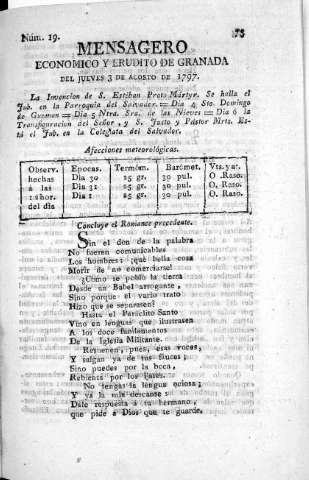 Núm. 19. 73
MENSAGERO
ECONOMICO Y ERUDITO DE GRANADA
DEL JUEVES 3 DE AGOSTO DE 1797.
La Invencion de S. Estéban Proto Mártyr. Se halla el
Jub. en la Parroquia del Salvador. = Dia 4 Sto. Domingo
de Guzman = Dia 5 Ntra. Sra. de las Nieves = Dia 6 la
Transfiguracion del Señor, y S. Justo y Pástor Mrts. Es-
tá el Jub. en la Colegiata del Salvador.
Afecciones meteorológicas.
Observ. Epocas. Termóm. Barómet. Vts. y at.
hechas Dia 30 25 gr. 30 pul. O. Raso.
á las Dia 31 25 gr. 30 pul. O. Raso.
12 hor. Dia 1 25 gr. 30 pul. O. Raso.
del dia
Concluye el Romance precedente.
Sin el don de la palabra
No fueran comunicables
Los hombres: ¡qué bella cosa
Morir de no comerciarse!
¿Cómo se pobló la tierra
Desde un Babel arrogante,
Sino porque el vario trato
Hizo que se separasen?
Hasta el Paráclito Santo
Vino en lenguas que ilustrasen
A los doce fundamentos
De la Iglesia Militante.
Resuenen, pues, esas voces,
Y salgan ya de tus fauces;
Sino puedes por la boca,
Rebienta por los ijares.
No tengas la lengua ociosa;
Y ya la mia descanse:
Dale respuesta á tu hermano,
que pide á Dios que te guarde.